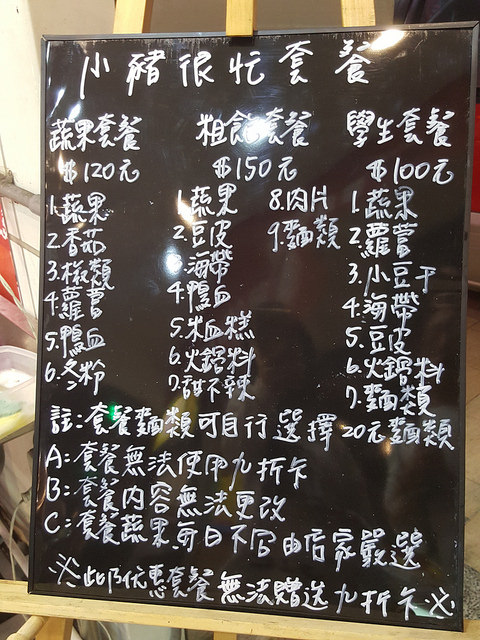 小豬很忙套餐
蔬果套餐
$120元
1.蔬果
2.香菇
3.核類
4.蘿蔔
5.鴨血
6.冬粉
粗飽套餐
$150元
1.蔬果
2.豆皮
海帶
4.鴨血
5.米血糕
6.火鍋料
7.甜不辣
8.肉片
9.麵類
學生套餐
$100元
1.蔬果
2.蘿蔔
3.小豆干
4.海帶
5.豆皮
6.火鍋料
7.麵類
註:套餐麵類可自行選擇20元麵類
A:套餐無法使用九折卡
B:套餐內容無法更改
C:套餐蔬果每日不同由店家嚴選
※此乃优惠套餐無法贈送九折卡※